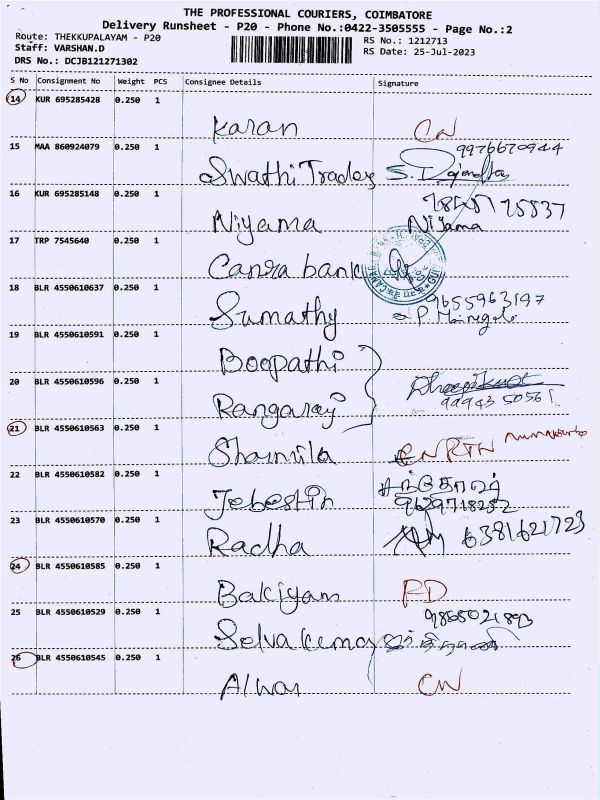 THE PROFESSIONAL COURIERS, COIMBATORE
Delivery Runsheet - P20 - Phone No.:0422-3505555 - Page No.:2
Route: THEKKUPALAYAM - P20
RS No.: 1212713
Staff: VARSHAN.D
RS Date: 25-Jul-2023
DRS No.: DCJB121271302
S No Consignment No Weight PCS Consignee Details Signature
14 KUR 695285428 0.250 1
Karan CN
15 MAA 860924079 0.250 1 9976670944
Swathi Trades
16 KUR 695285148 0.250 1
Niyama Niyama
17 TRP 7545640 0.250 1
Canra bank
18 BLR 4550610637 0.250 1 9655963197
Sumathy
19 BLR 4550610591 0.250 1
Boopathi
20 BLR 4550610596 0.250 1
Rangaraj 99943 50561
21 BLR 4550610563 0.250 1
Sharmila CN RTN
22 BLR 4550610582 0.250 1
Jebestin 9629718252
23 BLR 4550610570 0.250 1
Radha 6381621723
24 BLR 4550610585 0.250 1
Bakiyam RD
25 BLR 4550610529 0.250 1
Selvakumar
26 BLR 4550610545 0.250 1
Alwar CN